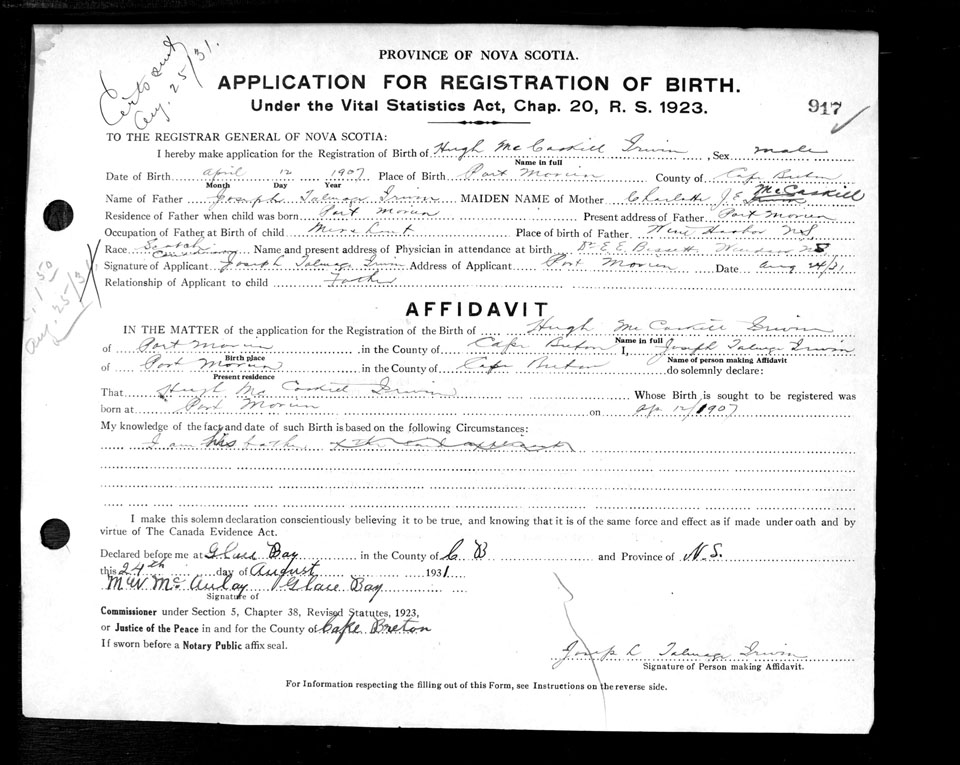 PROVINCE OF NOVA SCOTIA.
Aug. 25/31.
APPLICATION FOR REGISTRATION OF BIRTH.
Under the Vital Statistics Act, Chap. 20, R. S. 1923.
917
TO THE REGISTRAR GENERAL OF NOVA SCOTIA:
I hereby make application for the Registration of Birth of Hugh McCaskill Irwin, Sex male
Name in full
Date of Birth April 12 1907 Place of Birth Port Morien County of Cape Breton
Month Day Year
Name of Father Joseph Talmage Irwin MAIDEN NAME of Mother Charlotte J. E. McCaskill
Residence of Father when child was born Port Morien Present address of Father Port Morien
Occupation of Father at Birth of child Merchant Place of birth of Father Wine Harbor NS
Race Scotch Canadian Name and present address of Physician in attendance at birth Dr E. E. Bissett Windsor NS
Signature of Applicant Joseph Talmage Irwin Address of Applicant Port Morien Date Aug 24/31
Relationship of Applicant to child Father
1.50
Aug. 25/31
AFFIDAVIT
IN THE MATTER of the application for the Registration of the Birth of Hugh McCaskill Irwin
Name in full
of Port Morien, in the County of Cape Breton I, Joseph Talmage Irwin
Birth place Name of person making Affidavit
of Port Morien in the County of Cape Breton do solemnly declare:
Present residence
That Hugh McCaskill Irwin Whose Birth is sought to be registered was
born at Port Morien on Ap. 12/1907
My knowledge of the fact and date of such Birth is based on the following Circumstances:
I am his father
I make this solemn declaration conscientiously believing it to be true, and knowing that it is of the same force and effect as if made under oath and by
virtue of The Canada Evidence Act.
Declared before me at Glace Bay in the County of C B and Province of N.S.
this 24th day of August 1931
McAulay Glace Bay
Signature of
Commissioner under Section 5, Chapter 38, Revised Statutes, 1923,
or Justice of the Peace in and for the County of Cape Breton
If sworn before a Notary Public affix seal.
Joseph Talmage Irwin
Signature of Person making Affidavit.
For Information respecting the filling out of this Form, see Instructions on the reverse side.